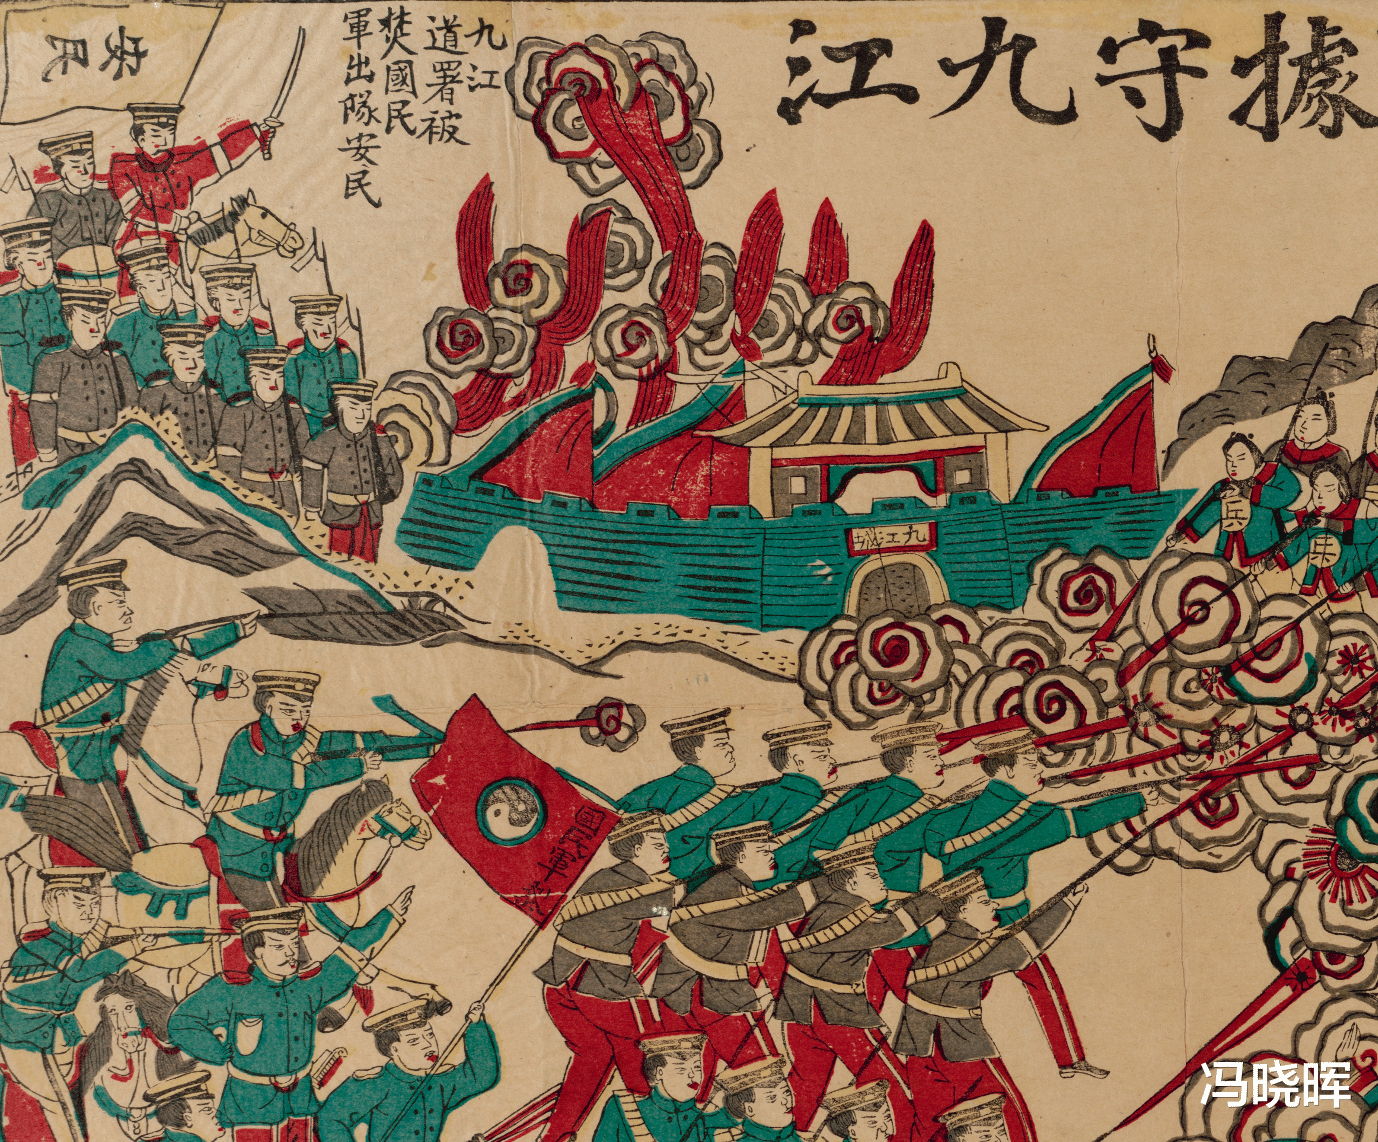 據守九江
九江
道署被
焚國民
軍出隊安民
安民
九江城
兵
兵
冯晓晖